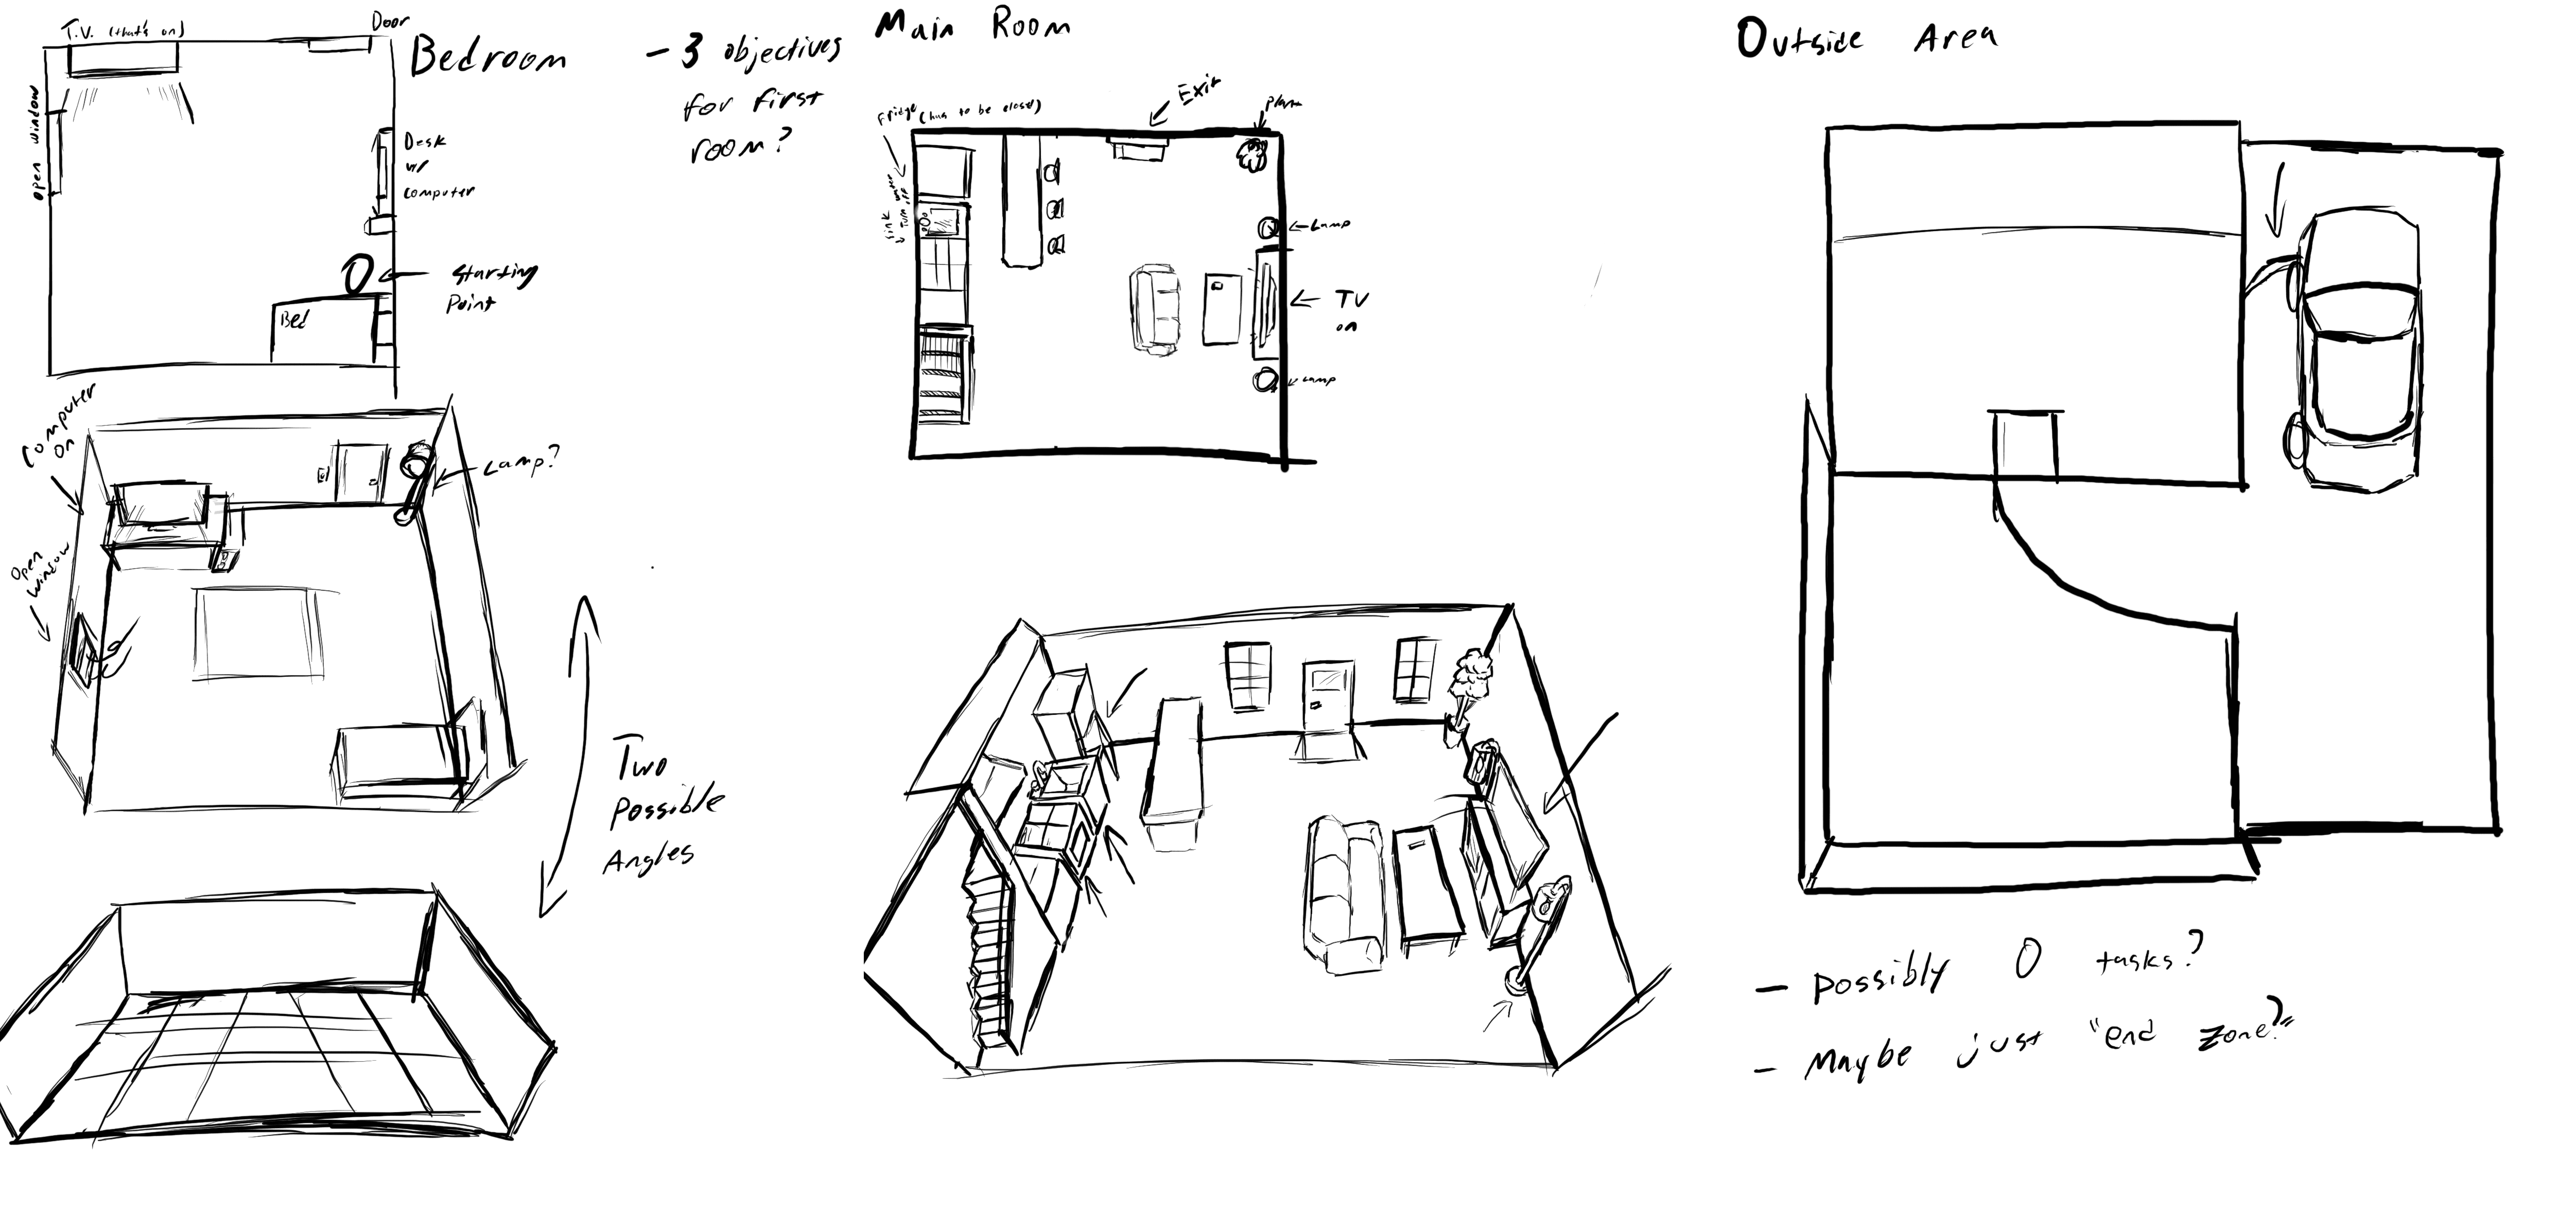 T.V. (that's on)
Door
Bedroom
open window
Desk
w/
computer
Starting
Point
Bed
- 3 objectives
for first
room?
Computer
on
Lamp?
Open
Window
Two
Possible
Angles
Main Room
Fridge (has to be closed)
Exit
Plant
sink water
turn off
Lamp
TV
on
Lamp
Outside Area
- Possibly 0 tasks?
- Maybe just "end zone?"